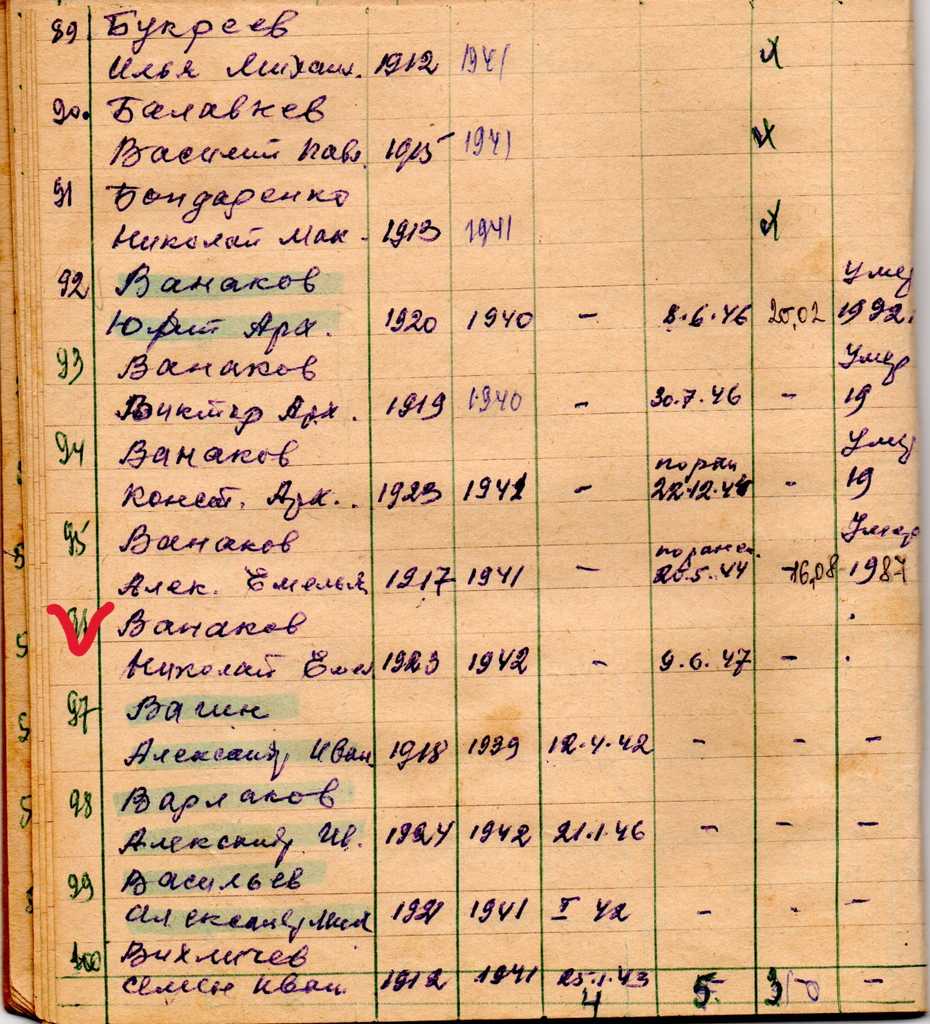 89 Букреев
Илья Михаил. 1912 1941 х
90. Балавнев
Василий Пав. 1915 1941 х
91 Бондаренко
Николай Мак. 1913 1941 х
92 Ванаков Умер
Юрий Арх. 1920 1940 – 8.6.46 25,02 1992.
93 Ванаков Умер
Виктор Арх. 1919 1940 – 30.7.46 – 19
94 Ванаков Умер
Конст. Арх.. 1923 1941 – 22.12.44 – 19
95 Ванаков Умер
Алек. Емельян 1917 1941 – поранен. 20.5.44 -16,08 1987
Ванаков
Николай Емел 1923 1942 – 9.6.47 –
97 Вагин
Александр Иван 1918 1939 12.4.42 – – –
98 Варлаков
Александр Ив. 1924 1942 21.1.46 – – –
99 Васильев
Александр Мих 1921 1941 I 42 – – –
100 Вихличев
Семен Иван. 1912 1941 25.1.43 –
4 5 3